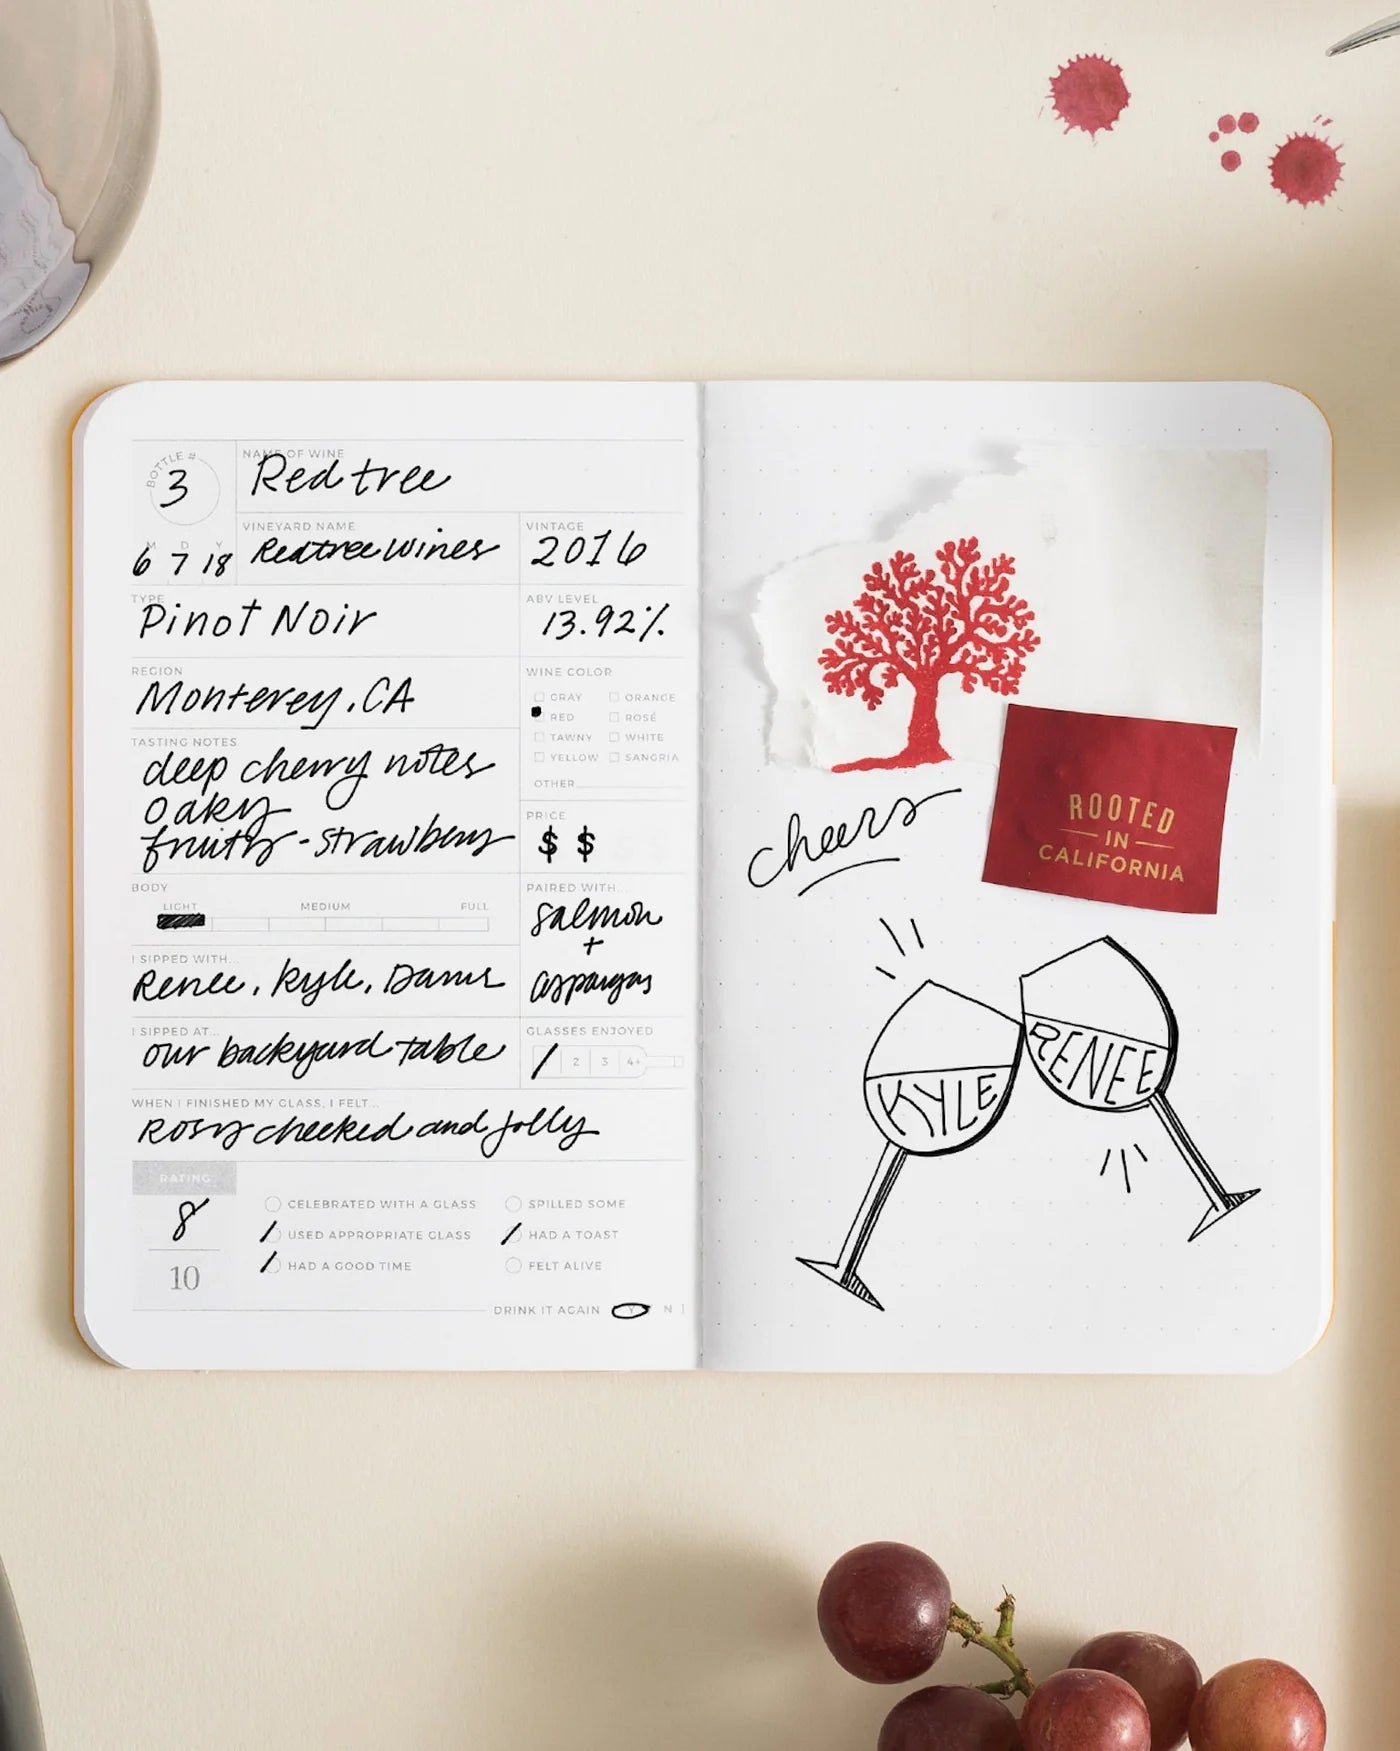 BOTTLE #
3
M D Y
6 7 18
NAME OF WINE
Redtree
VINEYARD NAME
Redtree Wines
VINTAGE
2016
TYPE
Pinot Noir
ABV LEVEL
13.92%
REGION
Monterey, CA
WINE COLOR
GRAY ORANGE
RED ROSÉ
TAWNY WHITE
YELLOW SANGRIA
OTHER
TASTING NOTES
deep cherry notes
oaky
fruity - strawberry
PRICE
$ $
BODY
LIGHT MEDIUM FULL
PAIRED WITH...
salmon
+
I SIPPED WITH...
Renee, Kyle,
I SIPPED AT...
our backyard table
GLASSES ENJOYED
2 3 4+
WHEN I FINISHED MY GLASS, I FELT...
Rosy cheeked and jolly
RATING
8
10
CELEBRATED WITH A GLASS
USED APPROPRIATE GLASS
HAD A GOOD TIME
SPILLED SOME
HAD A TOAST
FELT ALIVE
DRINK IT AGAIN Y N
ROOTED
IN
CALIFORNIA
cheers
KYLE
RENEE